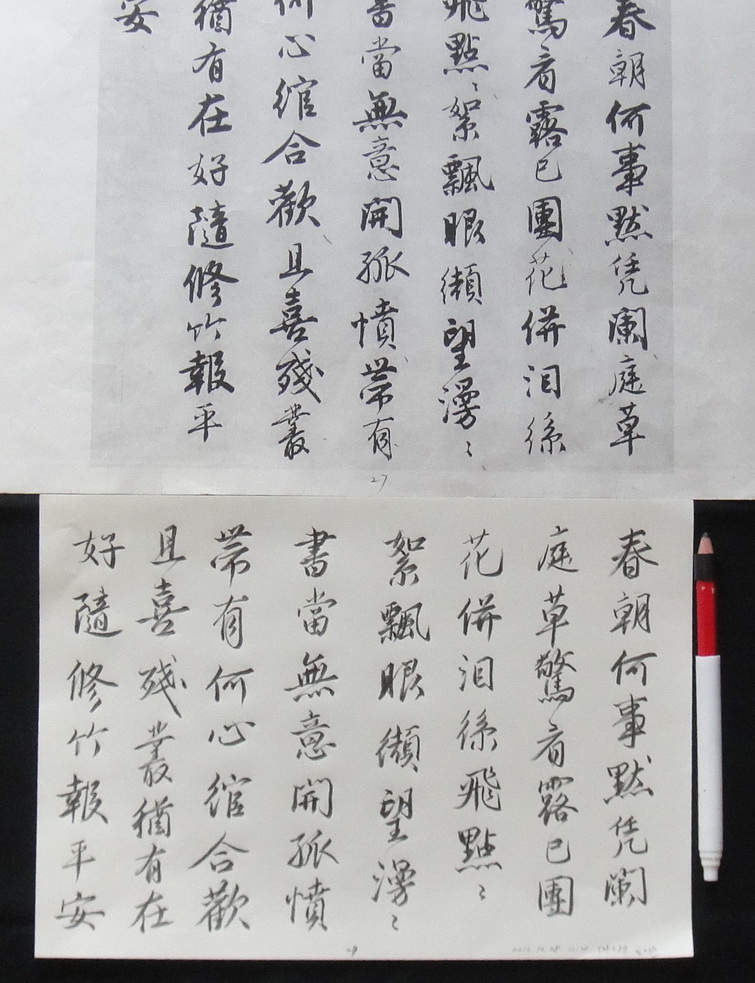 春朝何事黙凭闌庭草
驚看露已團花併泪絲
飛點〻絮飄眼纈望漫〻
書當無意開孤憤帶有
何心綰合歡且喜殘叢
猶有在好隨修竹報平
安
27
春朝何事黙凭闌
庭草驚看露已團
花併泪絲飛點〻
絮飄眼纈望漫〻
書當無意開孤憤
帶有何心綰合歡
且喜殘叢猶有在
好隨修竹報平安